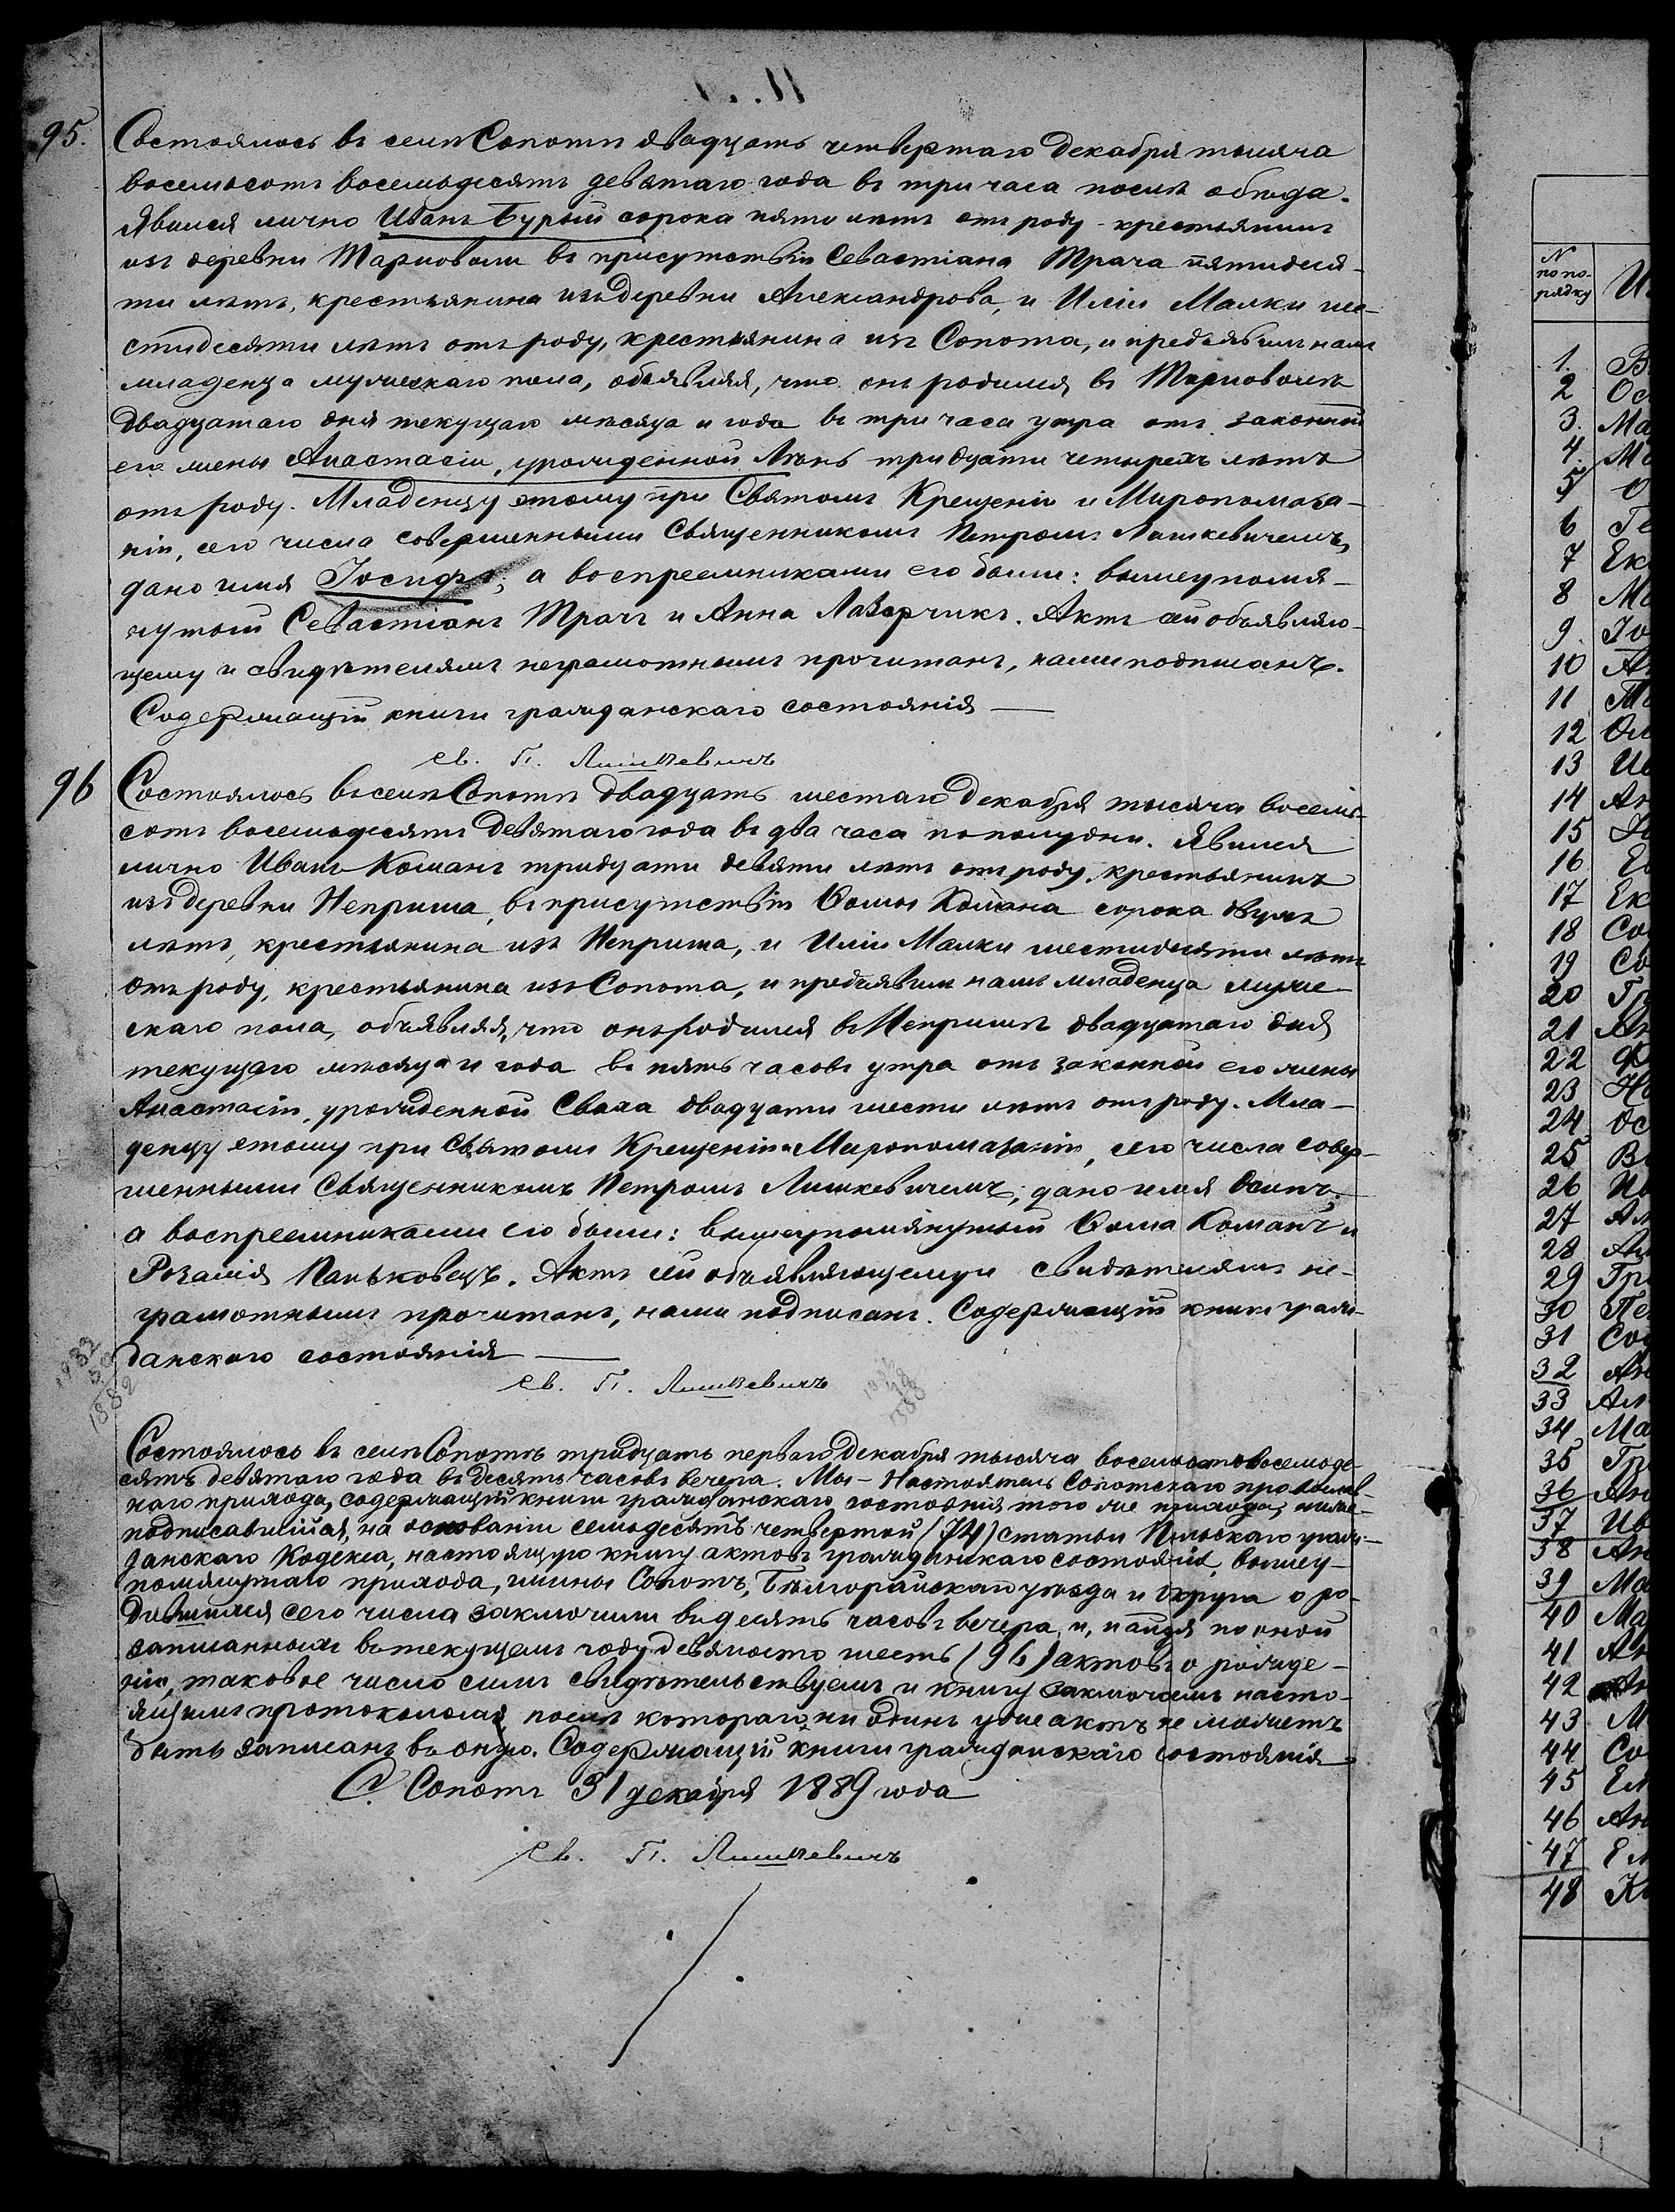 95.
Состоялось въ селѣ Сопотѣ двадцать четвертаго Декабря тысяча
восемьсотъ восемьдесятъ девятаго года въ три часа послѣ обѣда.
Явился лично Иванъ Бурый сорока пяти лѣтъ отъ роду крестьянинъ
изъ деревни Тарноволи въ присутствіи Севастіана Трача пятидеся-
ти лѣтъ, крестьянина изъ деревни Александрова, и Иліи Малки ше-
стидесяти лѣтъ отъ роду, крестьянина изъ Сопота, и предъявилъ намъ
младенца мужескаго пола, объявляя, что онъ родился въ Тарноволѣ
двадцатаго дня текущаго мѣсяца и года въ три часа утра отъ законной
его жены Анастасіи, урожденной Лѣнь тридцати четырехъ лѣтъ
отъ роду. Младенцу этому при Святомъ Крещеніи и Миропомаза-
ніи, сего числа совершенными Священникомъ Петромъ Лишкевичемъ,
дано имя Іосифъ; а воспреемниками его были: вышеупомя-
нутый Севастіанъ Трачъ и Анна Лазорчикъ. Актъ сей объявляю-
щему и свидѣтелямъ неграмотнымъ прочитанъ, нами подписанъ.
Содержащій книги гражданскаго состоянія
св. П. Лишкевичъ
96
Состоялось въ селѣ Сопотѣ двадцать шестаго Декабря тысяча восемь-
сотъ восемьдесятъ девятаго года въ два часа пополудни. Явился
лично Иванъ Команъ тридцати девяти лѣтъ отъ роду, крестьянинъ
изъ деревни Неприша, въ присутствіи Ѳомы Комана сорока двухъ
лѣтъ, крестьянина изъ Неприша, и Иліи Малки шестидесяти лѣтъ
отъ роду, крестьянина изъ Сопота, и предъявилъ намъ младенца муже-
скаго пола, объявляя, что онъ родился въ Непришѣ двадцатаго дня
текущаго мѣсяца и года въ пять часовъ утра отъ законной его жены
Анастасіи, урожденной Сваха двадцати шести лѣтъ отъ роду. Мла-
денцу этому при Святомъ Крещеніи и Миропомазаніи, сего числа совер-
шенными Священникомъ Петромъ Лишкевичемъ, дано имя Осипъ,
а воспреемниками его были: вышеупомянутый Ѳома Команъ и
Розалія Паньковецъ. Актъ сей объявляющему и свидѣтелямъ не-
грамотнымъ прочитанъ, нами подписанъ. Содержащій книги граж-
данскаго состоянія
св. П. Лишкевичъ
1932
50
1882
Состоялось въ селѣ Сопотѣ тридцать перваго Декабря тысяча восемьсотъ восемьде-
сятъ девятаго года въ десять часовъ вечера. Мы - Настоятель Сопотскаго православ-
наго прихода, содержащій книги гражданскаго состоянія того же прихода, ниже-
подписавшійся, на основаніи семьдесятъ четвертой (74) статьи Польскаго граж-
данскаго Кодекса, настоящую книгу актовъ гражданскаго состоянія, вышеу-
помянутаго прихода, гмины Сопотъ, Бѣлгорайскаго уѣзда и округа о ро-
дившихся сего числа заключили въ десять часовъ вечера, и, найдя по оной
записанныхъ въ текущемъ году девяносто шесть (96) актовъ о рожде-
ніи, таковое число симъ свидѣтельствуемъ и книгу заключаемъ насто-
ящимъ протоколомъ, послѣ котораго, ни одинъ уже актъ не можетъ
быть записанъ въ оную. Содержащій книги гражданскаго состоянія
С. Сопотъ 31 декабря 1889 года
св. П. Лишкевичъ
N
по по-
рядку
1. В
2 Ос
3. Ма
4. Ма
5 О
6 Ге
7 Ек
8 Ма
9. Іо
10 Ан
11 Ма
12 Ол
13 Ив
14 Ан
15
16 Ев
17 Ек
18 Со
19 Св
20 Гр
21 Ан
22 Ф
23 На
24 Ос
25 Ва
26
27 Ан
28 Ан
29 Гр
30 Пе
31 Соф
32 Ан
33 Ан
34 Ма
35 Гр
36 Ан
37 Ив
38 Ан
39 Ма
40 Ма
41 Ан
42 Ан
43 М
44 Со
45 Ел
46 Ан
47 Ел
48 К